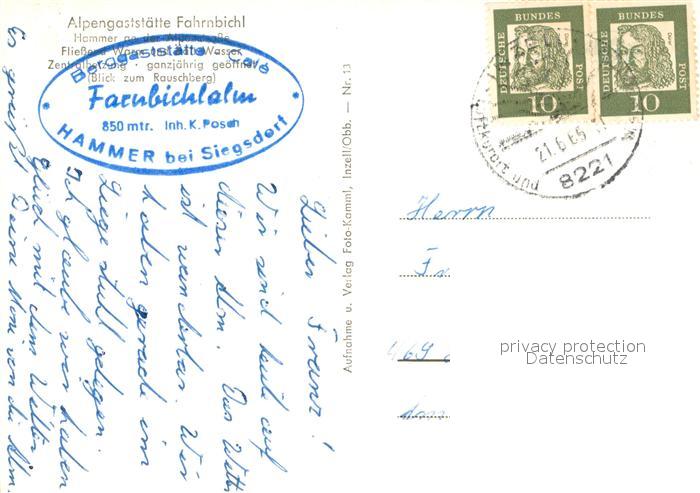 Alpengaststätte Fahrnbichl
Hammer an der Alpenstraße
Fließend Warm- und Kalt-Wasser
Zentralheizung · ganzjährig geöffnet
(Blick zum Rauschberg)
Berggaststätte Café
Farnbichlalm
850 mtr. Inh. K. Posch
HAMMER bei Siegsdorf
Aufnahme u. Verlag Foto-Kamml, Inzell/Obb. — Nr. 13
DEUTSCHE BUNDES POST
10
DEUTSCHE BUNDES POST
10
Luftkurort und
21.6.65
8221
Lieber Franz!
Wir sind heute auf
dieser Alm. Das Wetter
ist wunderbar. Wir
haben gerade im
Liegestuhl gelegen.
Ich glaube wir haben
Glück mit dem Wetter
Es grüßt Deine Moni von der Alm.
Herrn
Fr
469
privacy protection
Datenschutz